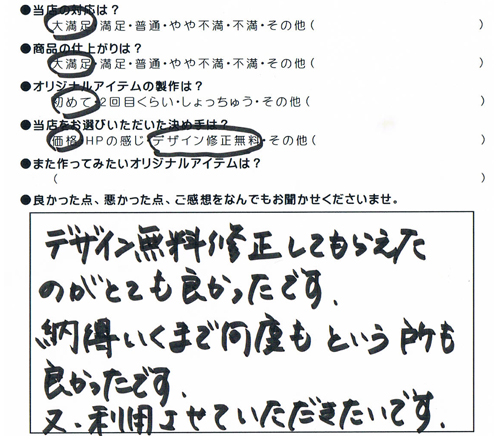 ●当店の対応は？
大満足・満足・普通・やや不満・不満・その他（　　　）
●商品の仕上がりは？
大満足・満足・普通・やや不満・不満・その他（　　　）
●オリジナルアイテムの製作は？
初めて・2回目くらい・しょっちゅう・その他（　　　）
●当店をお選びいただいた決め手は？
価格・HPの感じ・デザイン修正無料・その他（　　　）
●また作ってみたいオリジナルアイテムは？
（　　　）
●良かった点、悪かった点、ご感想をなんでもお聞かせくださいませ。
デザイン無料修正してもらえた
のがとても良かったです.
納得いくまで何度も という所も
良かったです.
又、利用させていただきたいです.